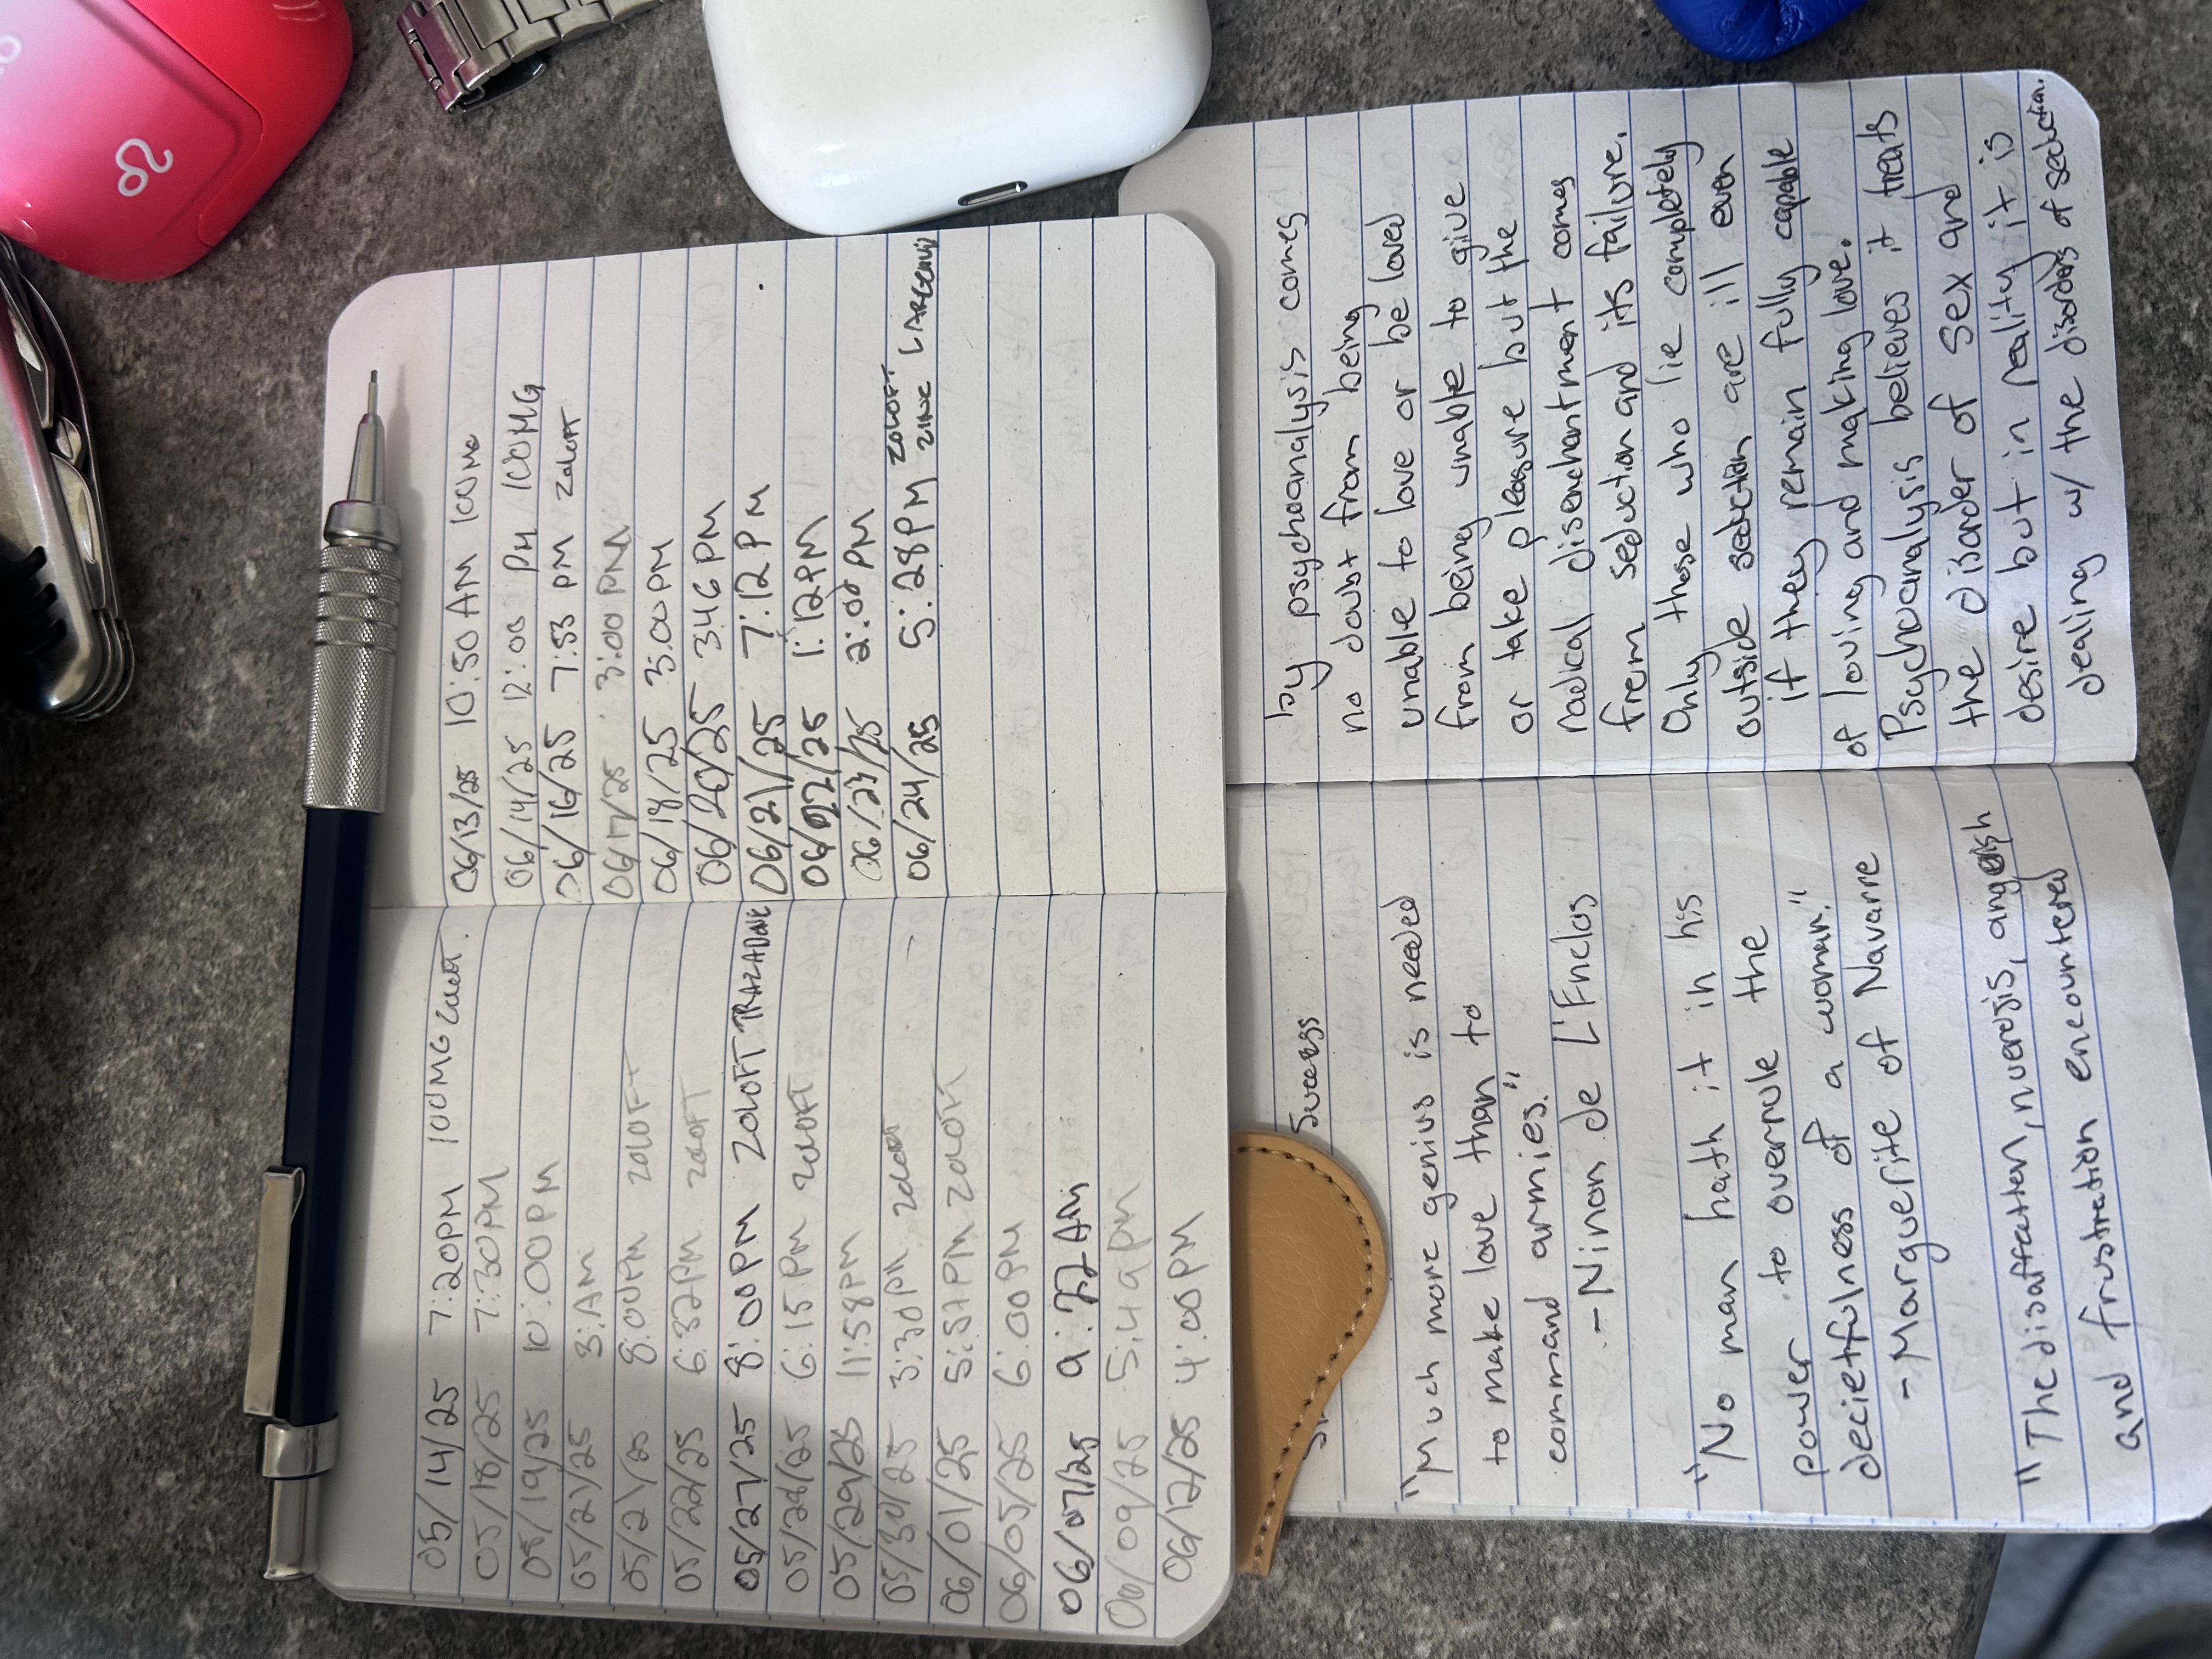 05/14/25 7:20PM 100MG Zoloft.
05/18/25 7:30PM
05/19/25 10:00PM
05/21/25 3:AM
05/21/25 8:00PM ZOLOFT
05/22/25 6:32PM ZOLOFT
05/27/25 8:00PM ZOLOFT TRAZADONE
05/28/25 6:15 PM ZOLOFT
05/29/25 11:58PM
05/30/25 3:30PM Zoloft
06/01/25 5:57PM ZOLOFT
06/05/25 6:00PM
06/07/25 9:22AM
06/09/25 5:49PM
06/12/25 4:00PM
06/13/25 10:50 AM 100MG
06/14/25 12:00 PM 100MG
06/16/25 7:53 PM ZOLOFT
06/17/25 3:00PM
06/18/25 3:00PM
06/20/25 3:46PM
06/21/25 7:12PM
06/22/25 1:12PM
06/23/25 2:00PM
06/24/25 5:28PM ZOLOFT
ZINC L ARGENINE
Success
"Much more genius is needed
to make love than to
command armies."
- Ninon de L'Enclos
"No man hath it in his
power to overrule the
decietfulness of a woman."
- Marguerite of Navarre
"The disaffection, nuerosis, angish
and frustration encountered
by psychoanalysis comes
no doubt from being
unable to love or be loved
from being unable to give
or take pleasure but the
radical disenchantment comes
from seduction and its failure.
Only those who lie completely
outside seduction are ill even
if they remain fully capable
of loving and making love.
Psychoanalysis believes it treats
the disorder of sex and
desire but in reality it is
dealing w/ the disorders of seduction.